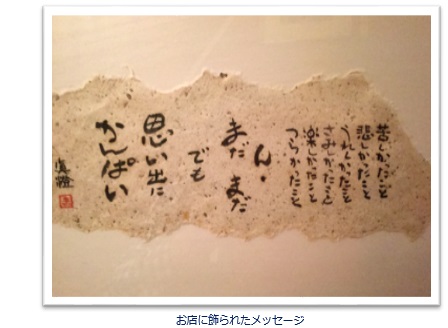 苦しかったこと
悲しかったこと
うれしかったこと
さみしかったこと
楽しかったこと
つらかったこと
ん・
まだ まだ
でも
思い出に
かんぱい
お店に飾られたメッセージ